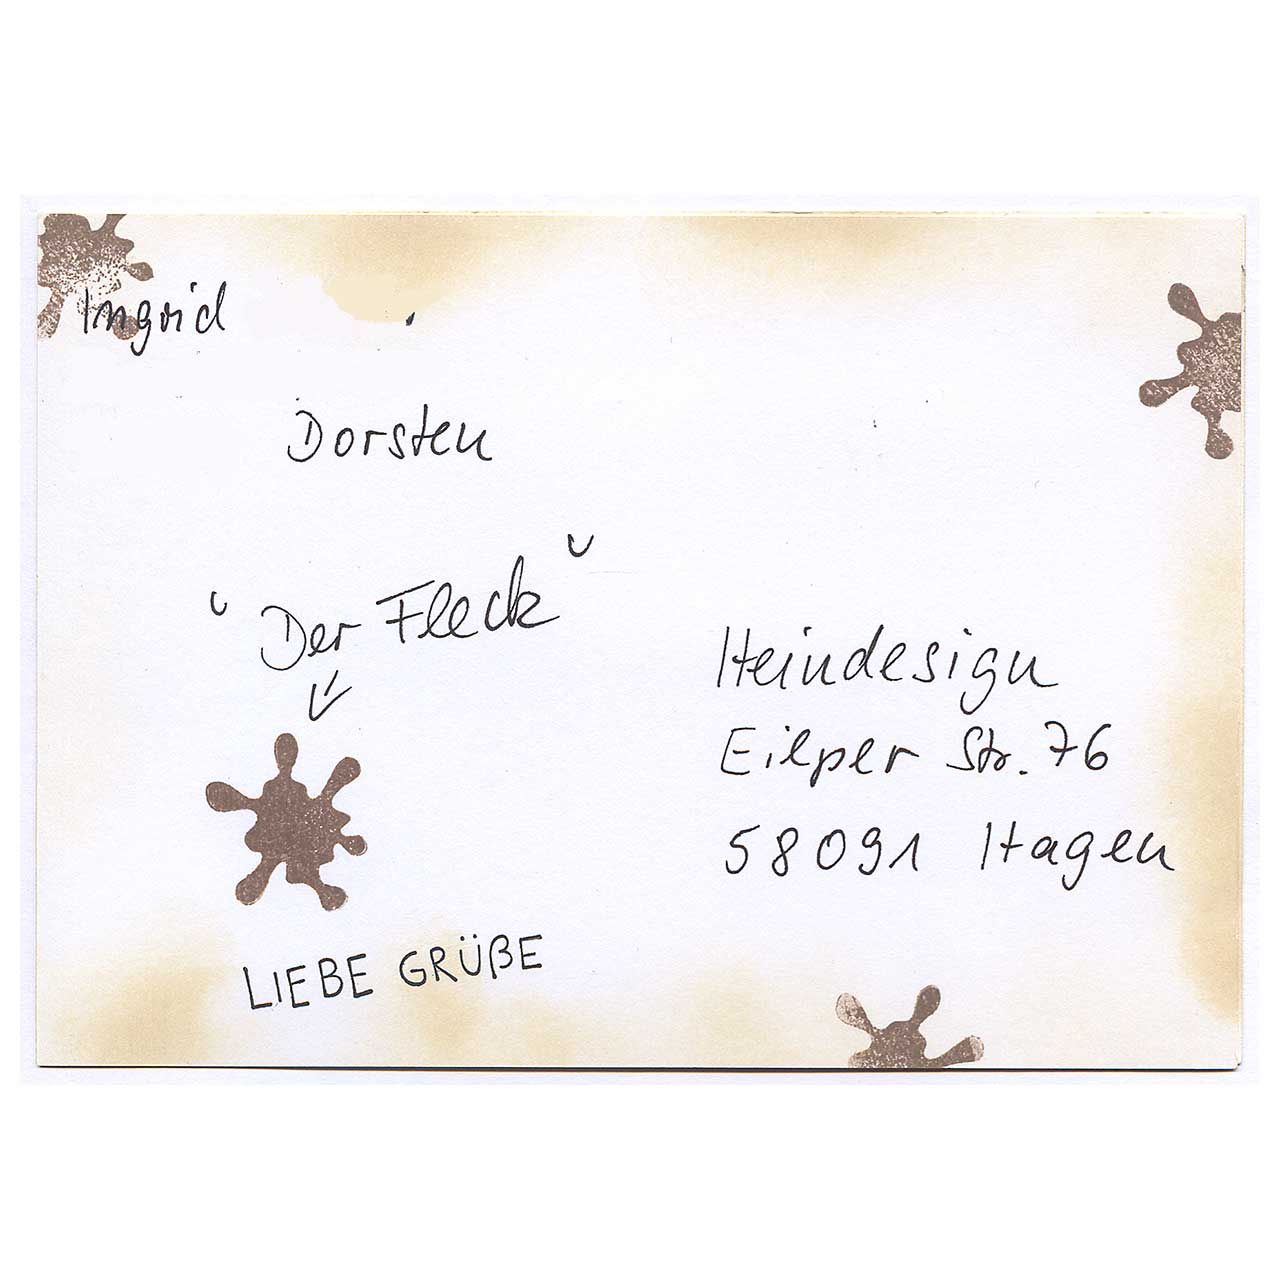 Ingrid
Dorsten
"Der Fleck"
LIEBE GRÜßE
Heindesign
Eilper Str. 76
58091 Hagen